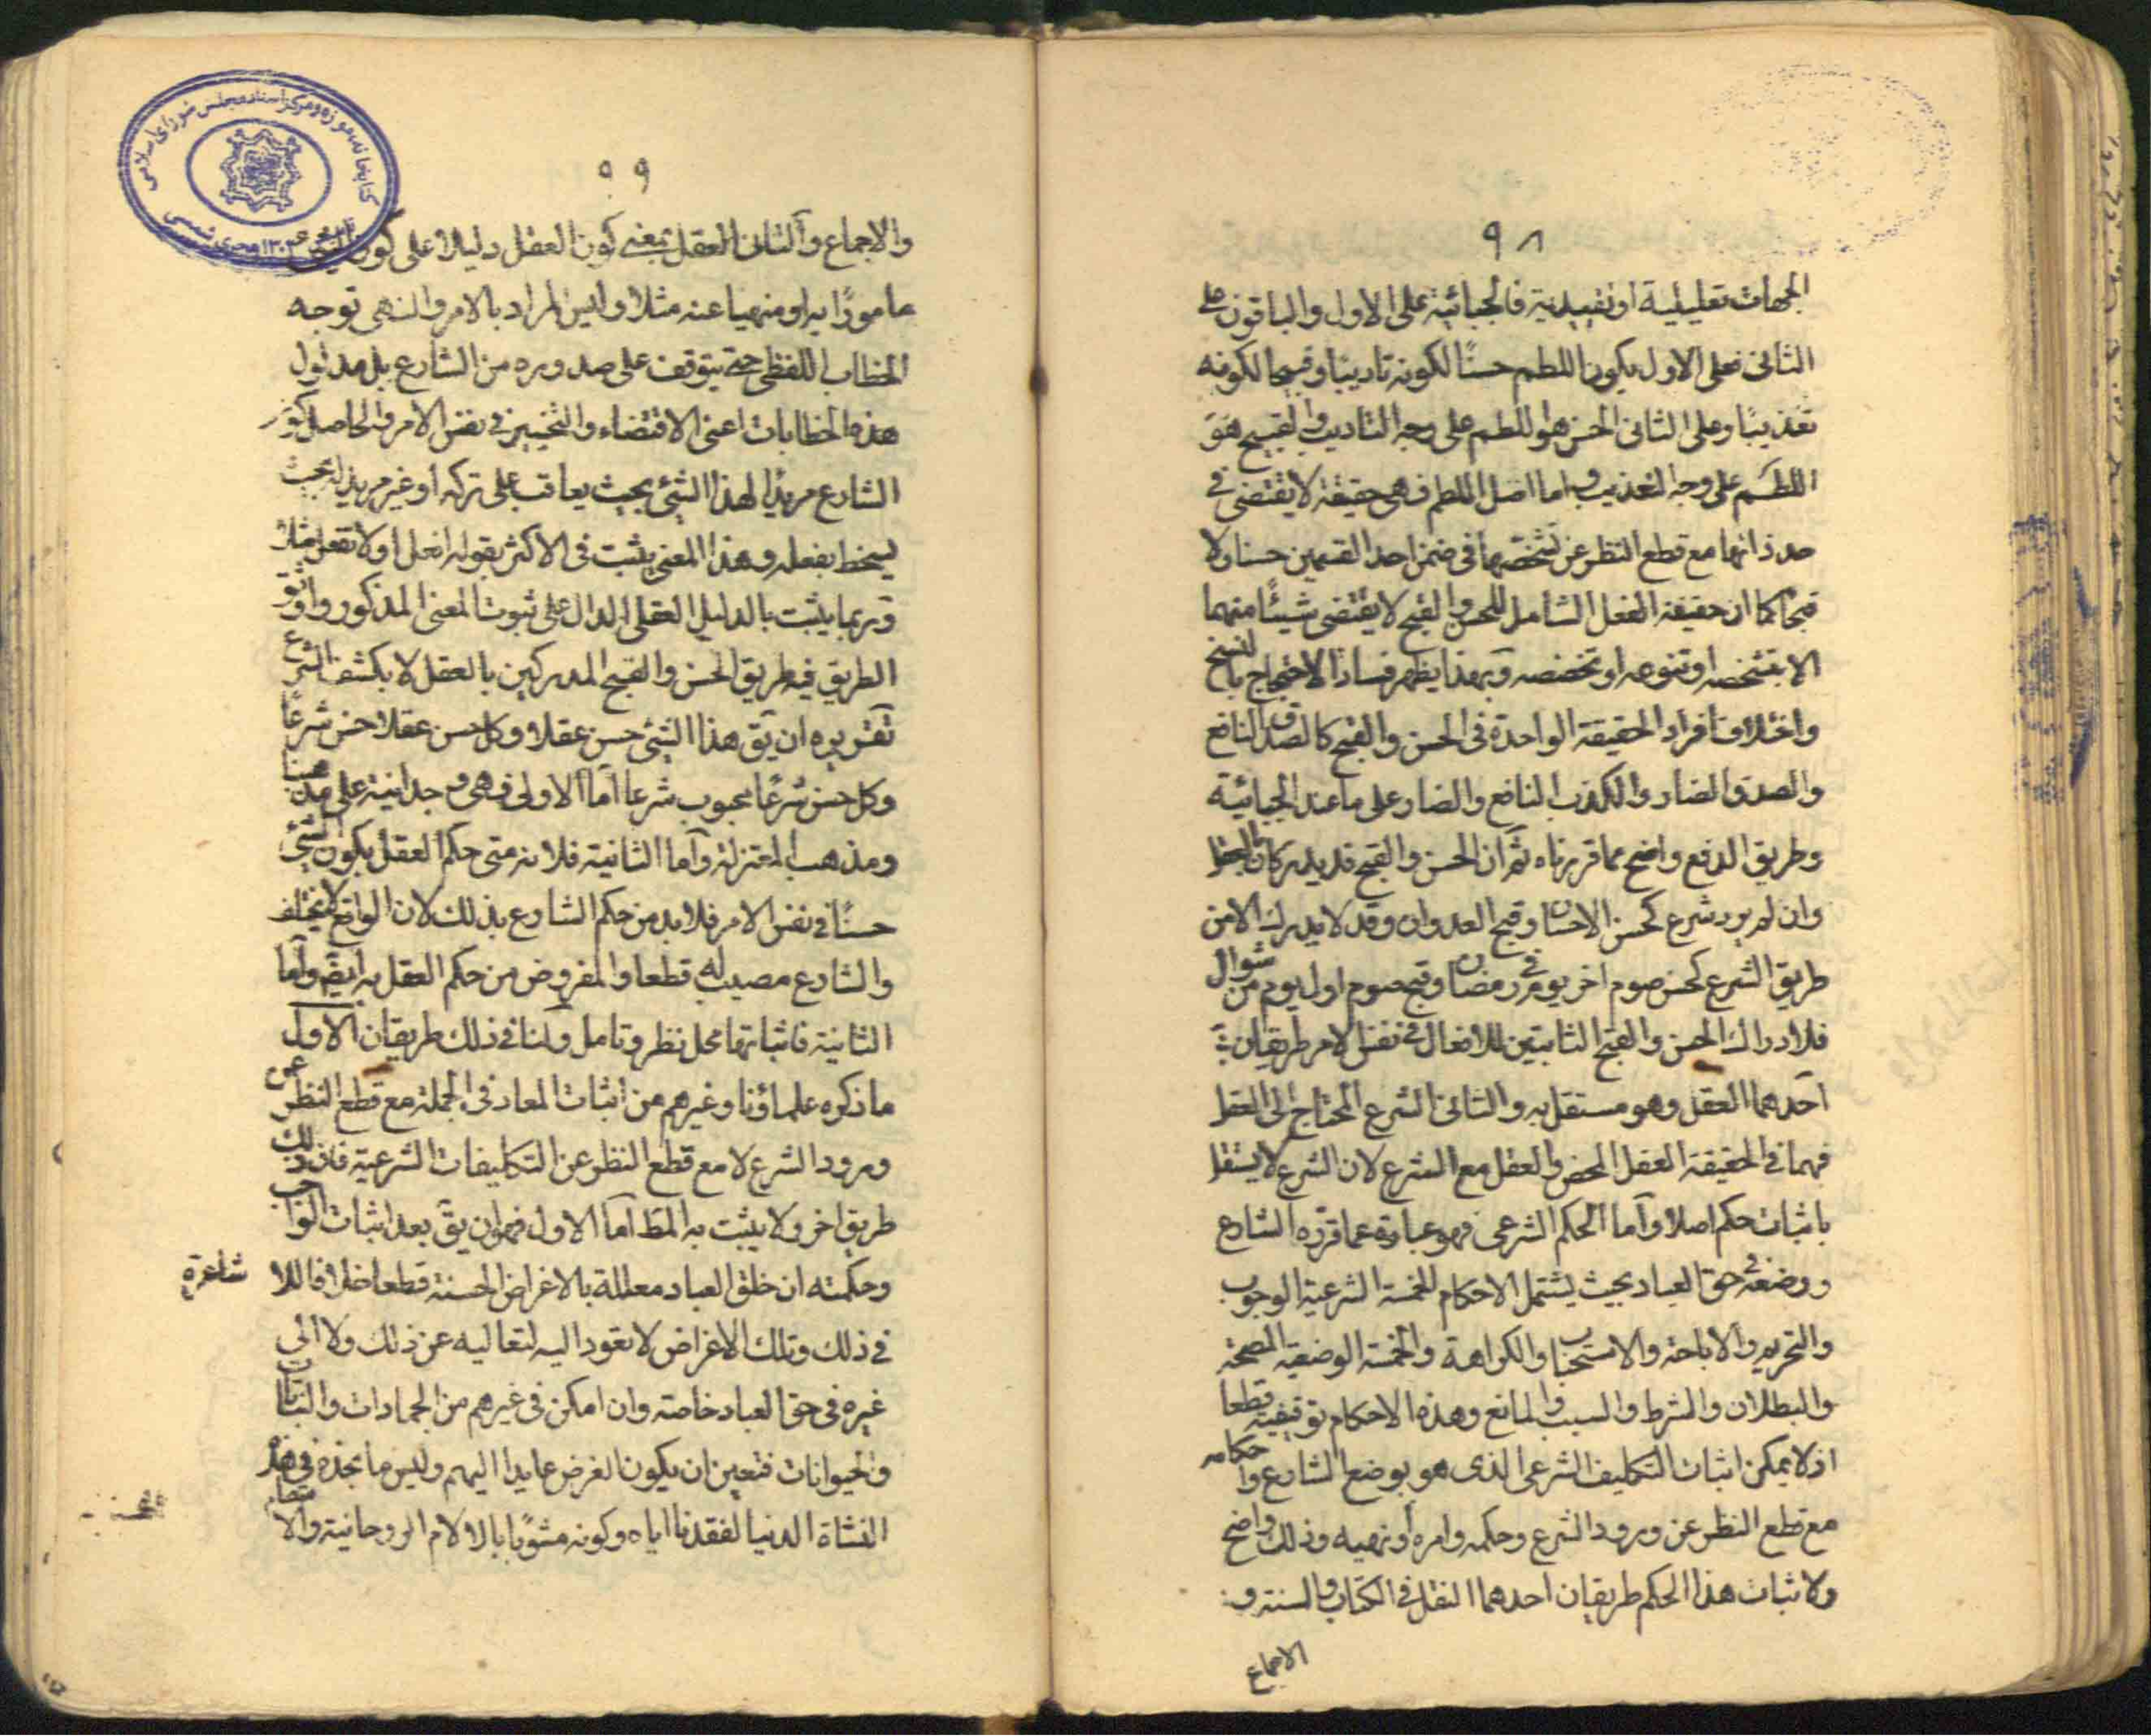 ٩٨
الجهات تعليلية او تقييدية فالجبائية على الاول والباقون على
الثانى فعلى الاول يكون اللطم حسنًا لكونه تاديبًا وقبيحا لكونه
تعذيبًا وعلى الثانى الحسن هو اللطم على وجه التاديب والقبيح هو
اللطم على وجه التعذيب واما اصل اللطم فهى حقيقة لا يقتضى فى
حد ذاتها مع قطع النظر عن تشخصها فى ضمن احد القسمين حسنا ولا
قبحًا كما ان حقيقة الفعل الشامل للحسن والقبح لا يقتضى شيئًا منهما
الا بتشخصه او تنوعه او تخصصه وبهذا يظهر فساد الاحتجاج بالنسخ
واختلاف افراد الحقيقة الواحدة فى الحسن والقبح كالصدق النافع
والصدق الضار والكذب النافع والضار على ما عند الجبائية
وطريق الدفع واضح مما قررناه ثم ان الحسن والقبح قد يدركان بالعقل
وان لم يرد شرع كحسن الاحسان وقبح العدوان وقد لا يدرك الا من
طريق الشرع كحسن صوم اخر يوم من رمضان وقبح صوم اول يوم من شوال
فلادراك الحسن والقبح الثابتين للافعال فى نفس الامر طريقان
احدهما العقل وهو مستقل به والثانى الشرع المحتاج الى العقل
فهما فى الحقيقة العقل المحض والعقل مع الشرع لان الشرع لا يستقل
باثبات حكم اصلا واما الحكم الشرعى فهو عبارة عما قرره الشارع
ووضعه فى حق العباد بحيث يشتمل الاحكام الخمسة الشرعية الوجوب
والتحريم والاباحة والاستحباب والكراهة والخمسة الوضعية الصحة
والبطلان والشرط والسبب والمانع وهذه الاحكام توقيفية قطعا
اذ لا يمكن اثبات التكليف الشرعى الذى هو بوضع الشارع واحكامه
مع قطع النظر عن ورود الشرع وحكمه وامره او نهيه وذلك واضح
ولاثبات هذا الحكم طريقان احدهما النقل فى الكتاب والسنة و
الاجماع
٩٩
والاجماع والثانى العقل بمعنى كون العقل دليلا على كون
مامورًا به او منهيا عنه مثلا وليس المراد بالامر والنهى توجه
الخطاب اللفظى حتى يتوقف على صدوره من الشارع بل مدلول
هذه الخطابات اعنى الاقتضاء والتخيير فى نفس الامر والحاصل كون
الشارع مريدًا لهذا الشئ بحيث يعاقب على تركه او غير مريد له بحيث
يسخط بفعله وهذا المعنى يثبت فى الاكثر بقوله افعل او لا تفعل مثلا
وربما يثبت بالدليل العقلى الدال على ثبوت المعنى المذكور واوثق
الطريق فيه طريق الحسن والقبح المدركين بالعقل لا بكشف الشرع
تقريره ان يق هذا الشئ حسن عقلا وكل حسن عقلا حسن شرعًا
وكل حسن شرعًا محبوب شرعا اما الاولى فهى وجدانية على مذهبنا
ومذهب المعتزلة واما الثانية فلانه متى حكم العقل بكون الشئ
حسنًا فى نفس الامر فلا بد من حكم الشارع بذلك لان الواقع لا يختلف
والشارع مصيب له قطعا والمفروض من حكم العقل به ايضا واما
الثانية فاثباتها محل نظر وتامل ولنا فى ذلك طريقان الاول
ما ذكره علماؤنا وغيرهم من اثبات المعاد فى الجملة مع قطع النظر عن
ورود الشرع لا مع قطع النظر عن التكليفات الشرعية فان ذلك
طريق اخر ولا يثبت به المط اما الاول فهو ان يق بعد اثبات الواجب
وحكمته ان خلق العباد معللة بالاغراض الحسنة قطعا خلافا للاشاعرة
فى ذلك وتلك الاغراض لا تعود اليه لتعاليه عن ذلك ولا الى
غيره فى حق العباد خاصة وان امكن فى غيرهم من الجمادات والنباتات
والحيوانات فتعين ان يكون الغرض عايدا اليهم وليس ما نجده فى هذه
النشاة الدنيا لفقدنا اياه وكونه مشوبًا بالالام الروحانية والا